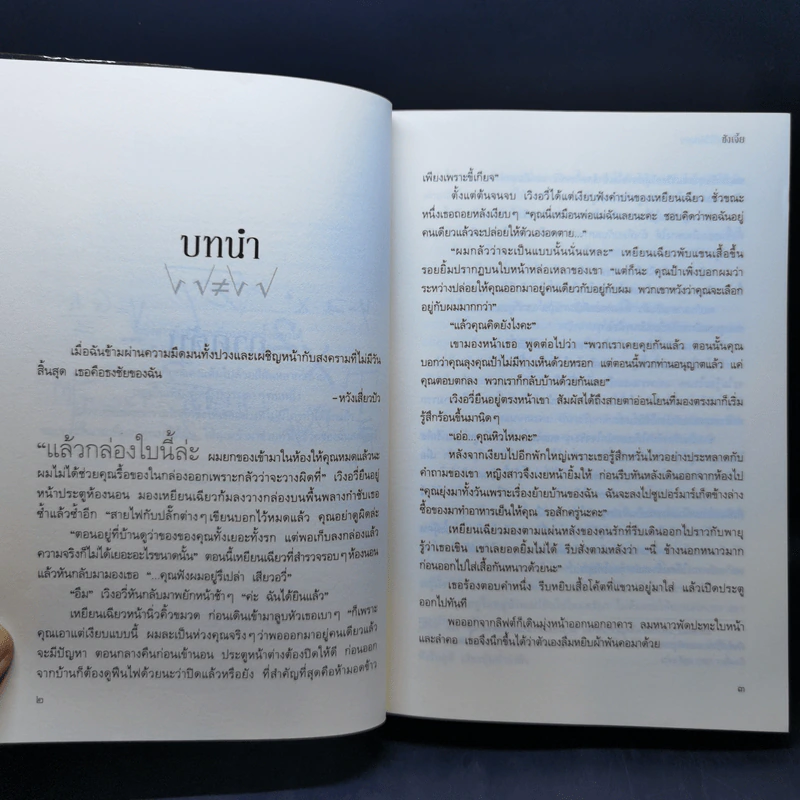 บทนำ
√ √≠√ √
เมื่อฉันข้ามผ่านความมืดมนทั้งปวงและเผชิญหน้ากับสงครามที่ไม่มีวัน
สิ้นสุด เธอคือธงชัยของฉัน
–หวังเสี่ยวปัว
“แล้วกล่องใบนี้ล่ะ ผมยกของเข้ามาในห้องให้คุณหมดแล้วนะ
ผมไม่ได้ช่วยคุณรื้อของในกล่องออกเพราะกลัวว่าจะวางผิดที่” เวิงอวี่ยืนอยู่
หน้าประตูห้องนอน มองเหยียนเฉียวก้มลงวางกล่องบนพื้นพลางกำชับเธอ
ซ้ำแล้วซ้ำอีก “สายไฟกับปลั๊กต่างๆ เขียนบอกไว้หมดแล้ว คุณอย่าดูผิดล่ะ
“ตอนอยู่ที่บ้านดูว่าของของคุณทั้งเยอะทั้งรก แต่พอเก็บลงกล่องแล้ว
ความจริงก็ไม่ได้เยอะอะไรขนาดนั้น” ตอนนี้เหยียนเฉียวที่สำรวจรอบๆ ห้องนอน
แล้วหันกลับมามองเธอ “...คุณฟังผมอยู่รึเปล่า เสียวอวี่”
“อืม” เวิงอวี่หันกลับมาพยักหน้าช้าๆ “ค่ะ ฉันได้ยินแล้ว”
เหยียนเฉียวหน้านิ่วคิ้วขมวด ก่อนเดินเข้ามาลูบหัวเธอเบาๆ “ก็เพราะ
คุณเอาแต่เงียบแบบนี้ ผมละเป็นห่วงคุณจริงๆ ว่าพอออกมาอยู่คนเดียวแล้ว
จะมีปัญหา ตอนกลางคืนก่อนเข้านอน ประตูหน้าต่างต้องปิดให้ดี ก่อนออก
จากบ้านก็ต้องดูฟืนไฟด้วยนะว่าปิดแล้วหรือยัง ที่สำคัญที่สุดคือห้ามอดข้าว
๒
ซังเจี่ย
เพียงเพราะขี้เกียจ”
ตั้งแต่ต้นจนจบ เวิงอวี่ได้แต่เงียบฟังคำบ่นของเหยียนเฉียว ชั่วขณะ
หนึ่งเธอถอยหลังเงียบๆ “คุณนี่เหมือนพ่อแม่ฉันเลยนะคะ ชอบคิดว่าพอฉันอยู่
คนเดียวแล้วจะปล่อยให้ตัวเองอดตาย...”
“ผมกลัวว่าจะเป็นแบบนั้นนั่นแหละ” เหยียนเฉียวพับแขนเสื้อขึ้น
รอยยิ้มปรากฏบนใบหน้าหล่อเหลาของเขา “แต่ก็นะ คุณป้าเพิ่งบอกผมว่า
ระหว่างปล่อยให้คุณออกมาอยู่คนเดียวกับอยู่กับผม พวกเขาหวังว่าคุณจะเลือก
อยู่กับผมมากกว่า”
“แล้วคุณคิดยังไงคะ”
เขามองหน้าเธอ พูดต่อไปว่า “พวกเราเคยคุยกันแล้ว ตอนนั้นคุณ
บอกว่าคุณลุงคุณป้าไม่มีทางเห็นด้วยหรอก แต่ตอนนี้พวกท่านอนุญาตแล้ว แค่
คุณตอบตกลง พวกเราก็กลับบ้านด้วยกันเลย”
เวิงอวี่ยืนอยู่ตรงหน้าเขา สัมผัสได้ถึงสายตาอ่อนโยนที่มองตรงมาก็เริ่ม
รู้สึกร้อนขึ้นมานิดๆ
“เอ่อ...คุณหิวไหมคะ”
หลังจากเงียบไปอีกพักใหญ่เพราะเธอรู้สึกหวั่นไหวอย่างประหลาดกับ
คำถามของเขา หญิงสาวจึงเงยหน้ายิ้มให้ ก่อนรีบหันหลังเดินออกจากห้องไป
“คุณยุ่งมาทั้งวันเพราะเรื่องย้ายบ้านของฉัน ฉันจะลงไปซูเปอร์มาร์เก็ตข้างล่าง
ซื้อของมาทำอาหารเย็นให้คุณ รอสักครู่นะคะ”
เหยียนเฉียวมองตามแผ่นหลังของคนรักที่รีบเดินออกไปราวกับพายุ
รู้ว่าเธอเขิน เขาเลยอดยิ้มไม่ได้ รีบสั่งตามหลังว่า “นี่ ข้างนอกหนาวมาก
ก่อนออกไปใส่เสื้อกันหนาวด้วยนะ”
เธอร้องตอบคำหนึ่ง รีบหยิบเสื้อโค้ตที่แขวนอยู่มาใส่ แล้วเปิดประตู
ออกไปทันที
พอออกจากลิฟต์ก็เดินมุ่งหน้าออกนอกอาคาร ลมหนาวพัดปะทะใบหน้า
และลำคอ เธอจึงนึกขึ้นได้ว่าตัวเองลืมหยิบผ้าพันคอมาด้วย
๓